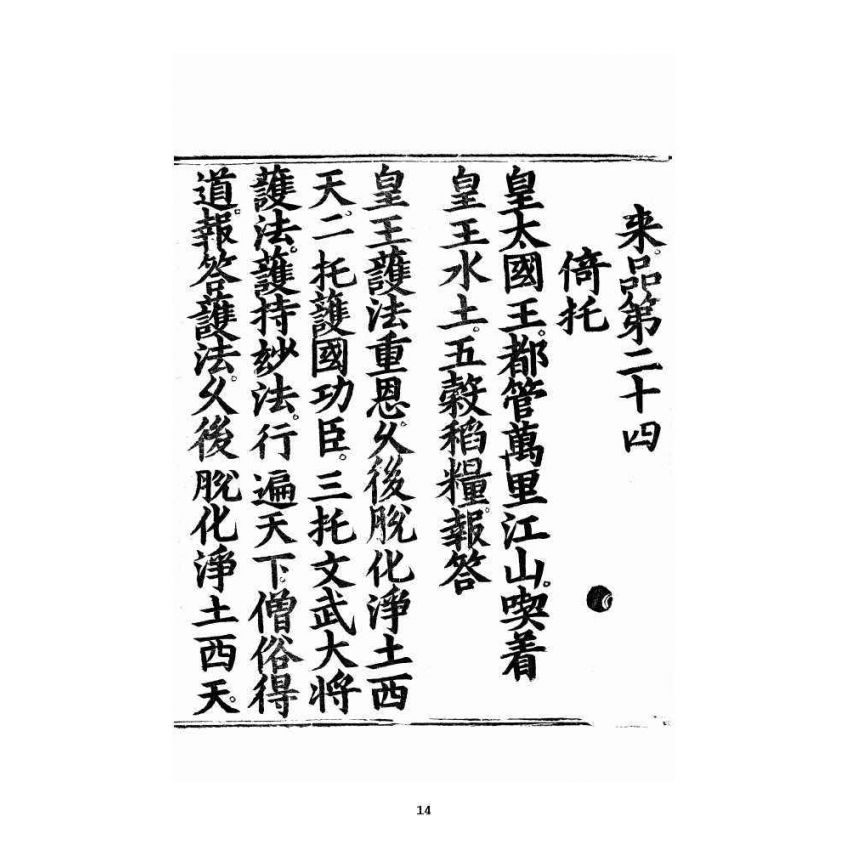 来。品第二十四
倚托
皇太國王。都管萬里江山。喫着
皇王水土。五穀稻糧。報答
皇王護法重恩。久後脫化淨土西
天。二托護國功臣。三托文武大將
護法。護持妙法。行遍天下。僧俗得
道。報答護法。久後脫化淨土西天。
14